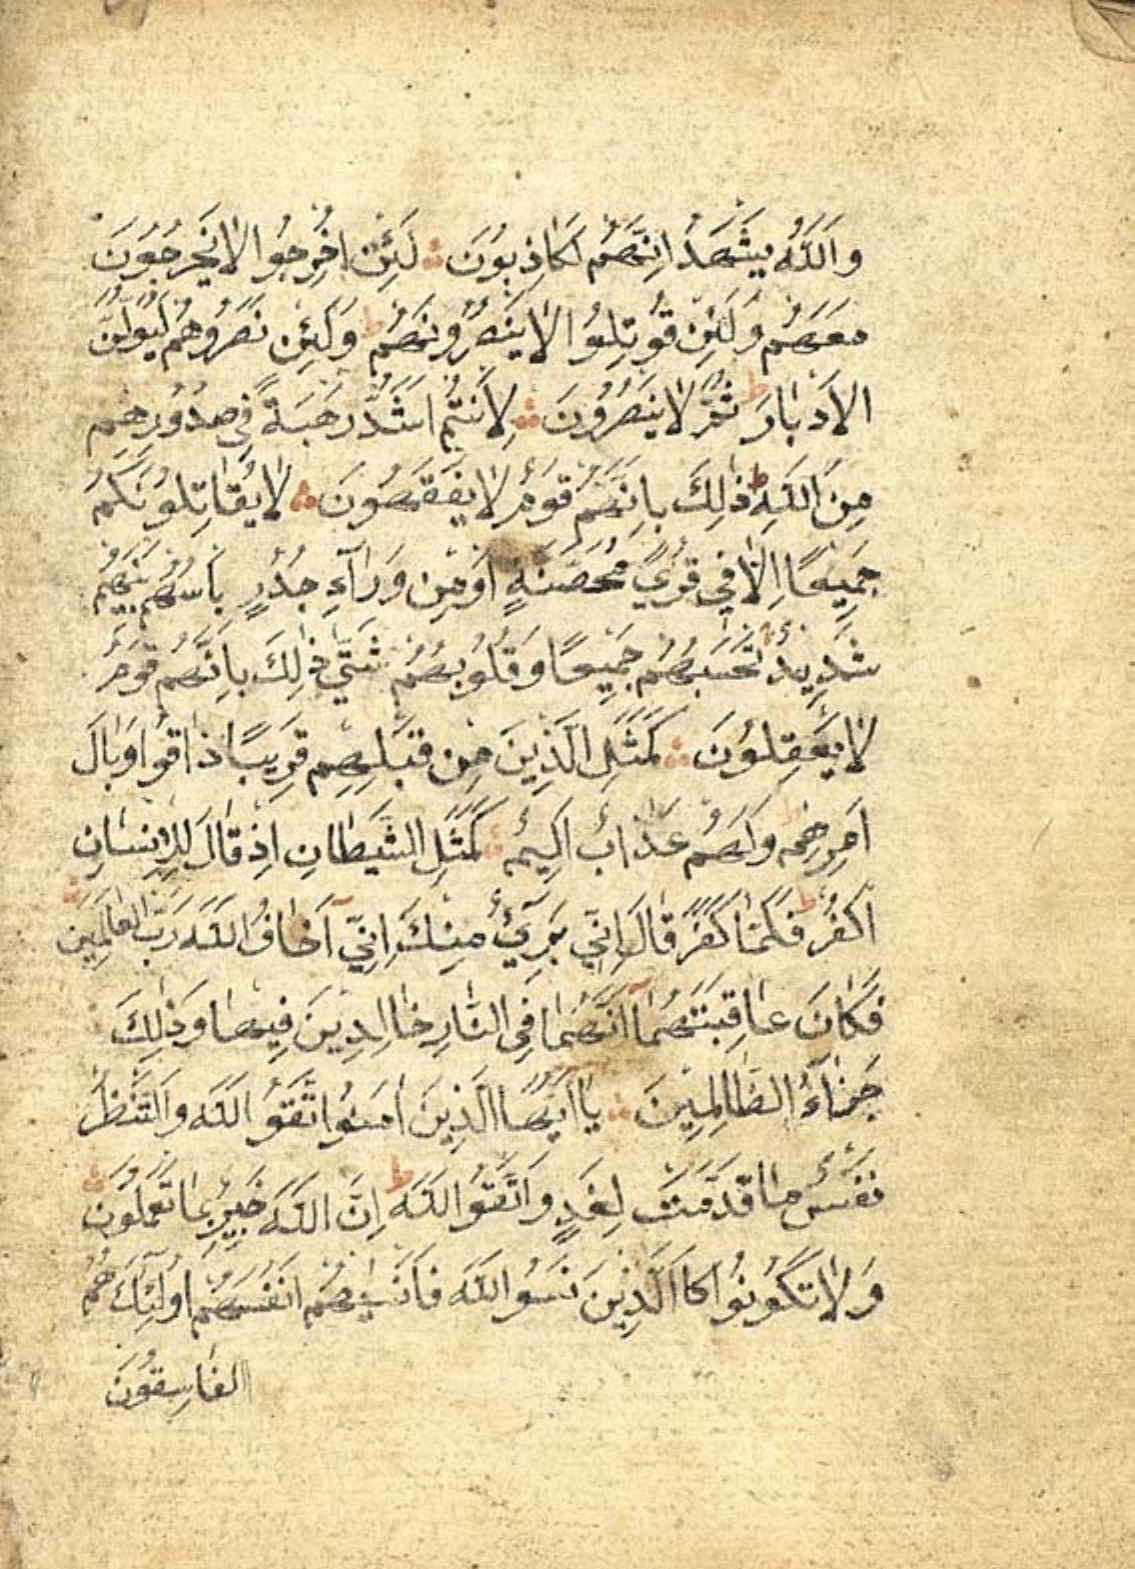 وَاللَّهُ يَشْهَدُ اِنَّهُمْ لَكَاذِبُونَ لَئِنْ اُخْرِجُوا لَا يَخْرُجُونَ
مَعَهُمْ وَلَئِنْ قُوتِلُوا لَا يَنْصُرُونَهُمْ ط وَلَئِنْ نَصَرُوهُمْ لَيُوَلُّنَّ
الْاَدْبَارَ ط ثُمَّ لَا يُنْصَرُونَ لَاَنْتُمْ اَشَدُّ رَهْبَةً فِي صُدُورِهِمْ
مِنَ اللَّهِ ط ذٰلِكَ بِاَنَّهُمْ قَوْمٌ لَا يَفْقَهُونَ لَا يُقَاتِلُونَكُمْ
جَمِيعًا اِلَّا فِي قُرًي مُحَصَّنَةٍ اَوْ مِنْ وَرَآءِ جُدُرٍ بَاْسُهُمْ بَيْنَهُمْ
شَدِيدٌ تَحْسَبُهُمْ جَمِيعًا وَقُلُوبُهُمْ شَتّٰي ذٰلِكَ بِاَنَّهُمْ قَوْمٌ
لَا يَعْقِلُونَ كَمَثَلِ الَّذِينَ مِنْ قَبْلِهِمْ قَرِيبًا ذَاقُوا وَبَالَ
اَمْرِهِمْ وَلَهُمْ عَذَابٌ اَلِيمٌ كَمَثَلِ الشَّيْطَانِ اِذْ قَالَ لِلْاِنْسَانِ
اكْفُرْ ط فَلَمَّا كَفَرَ قَالَ اِنِّي بَرِيٓءٌ مِنْكَ اِنِّيٓ اَخَافُ اللَّهَ رَبَّ الْعَالَمِينَ
فَكَانَ عَاقِبَتَهُمَآ اَنَّهُمَا فِي النَّارِ خَالِدِينَ فِيهَا وَذٰلِكَ
جَزَآءُ الظَّالِمِينَ يَا اَيُّهَا الَّذِينَ اٰمَنُوا اتَّقُوا اللَّهَ وَالْتَنْظُرْ
نَفْسٌ مَا قَدَّمَتْ لِغَدٍ وَاتَّقُوا اللَّهَ ط اِنَّ اللَّهَ خَبِيرٌ بِمَا تَعْمَلُونَ
وَلَا تَكُونُوا كَا الَّذِينَ نَسُوا اللَّهَ فَاَنْسٰيهُمْ اَنْفُسَهُمْ اُولٰٓئِكَ هُمُ
الْفَاسِقُونَ